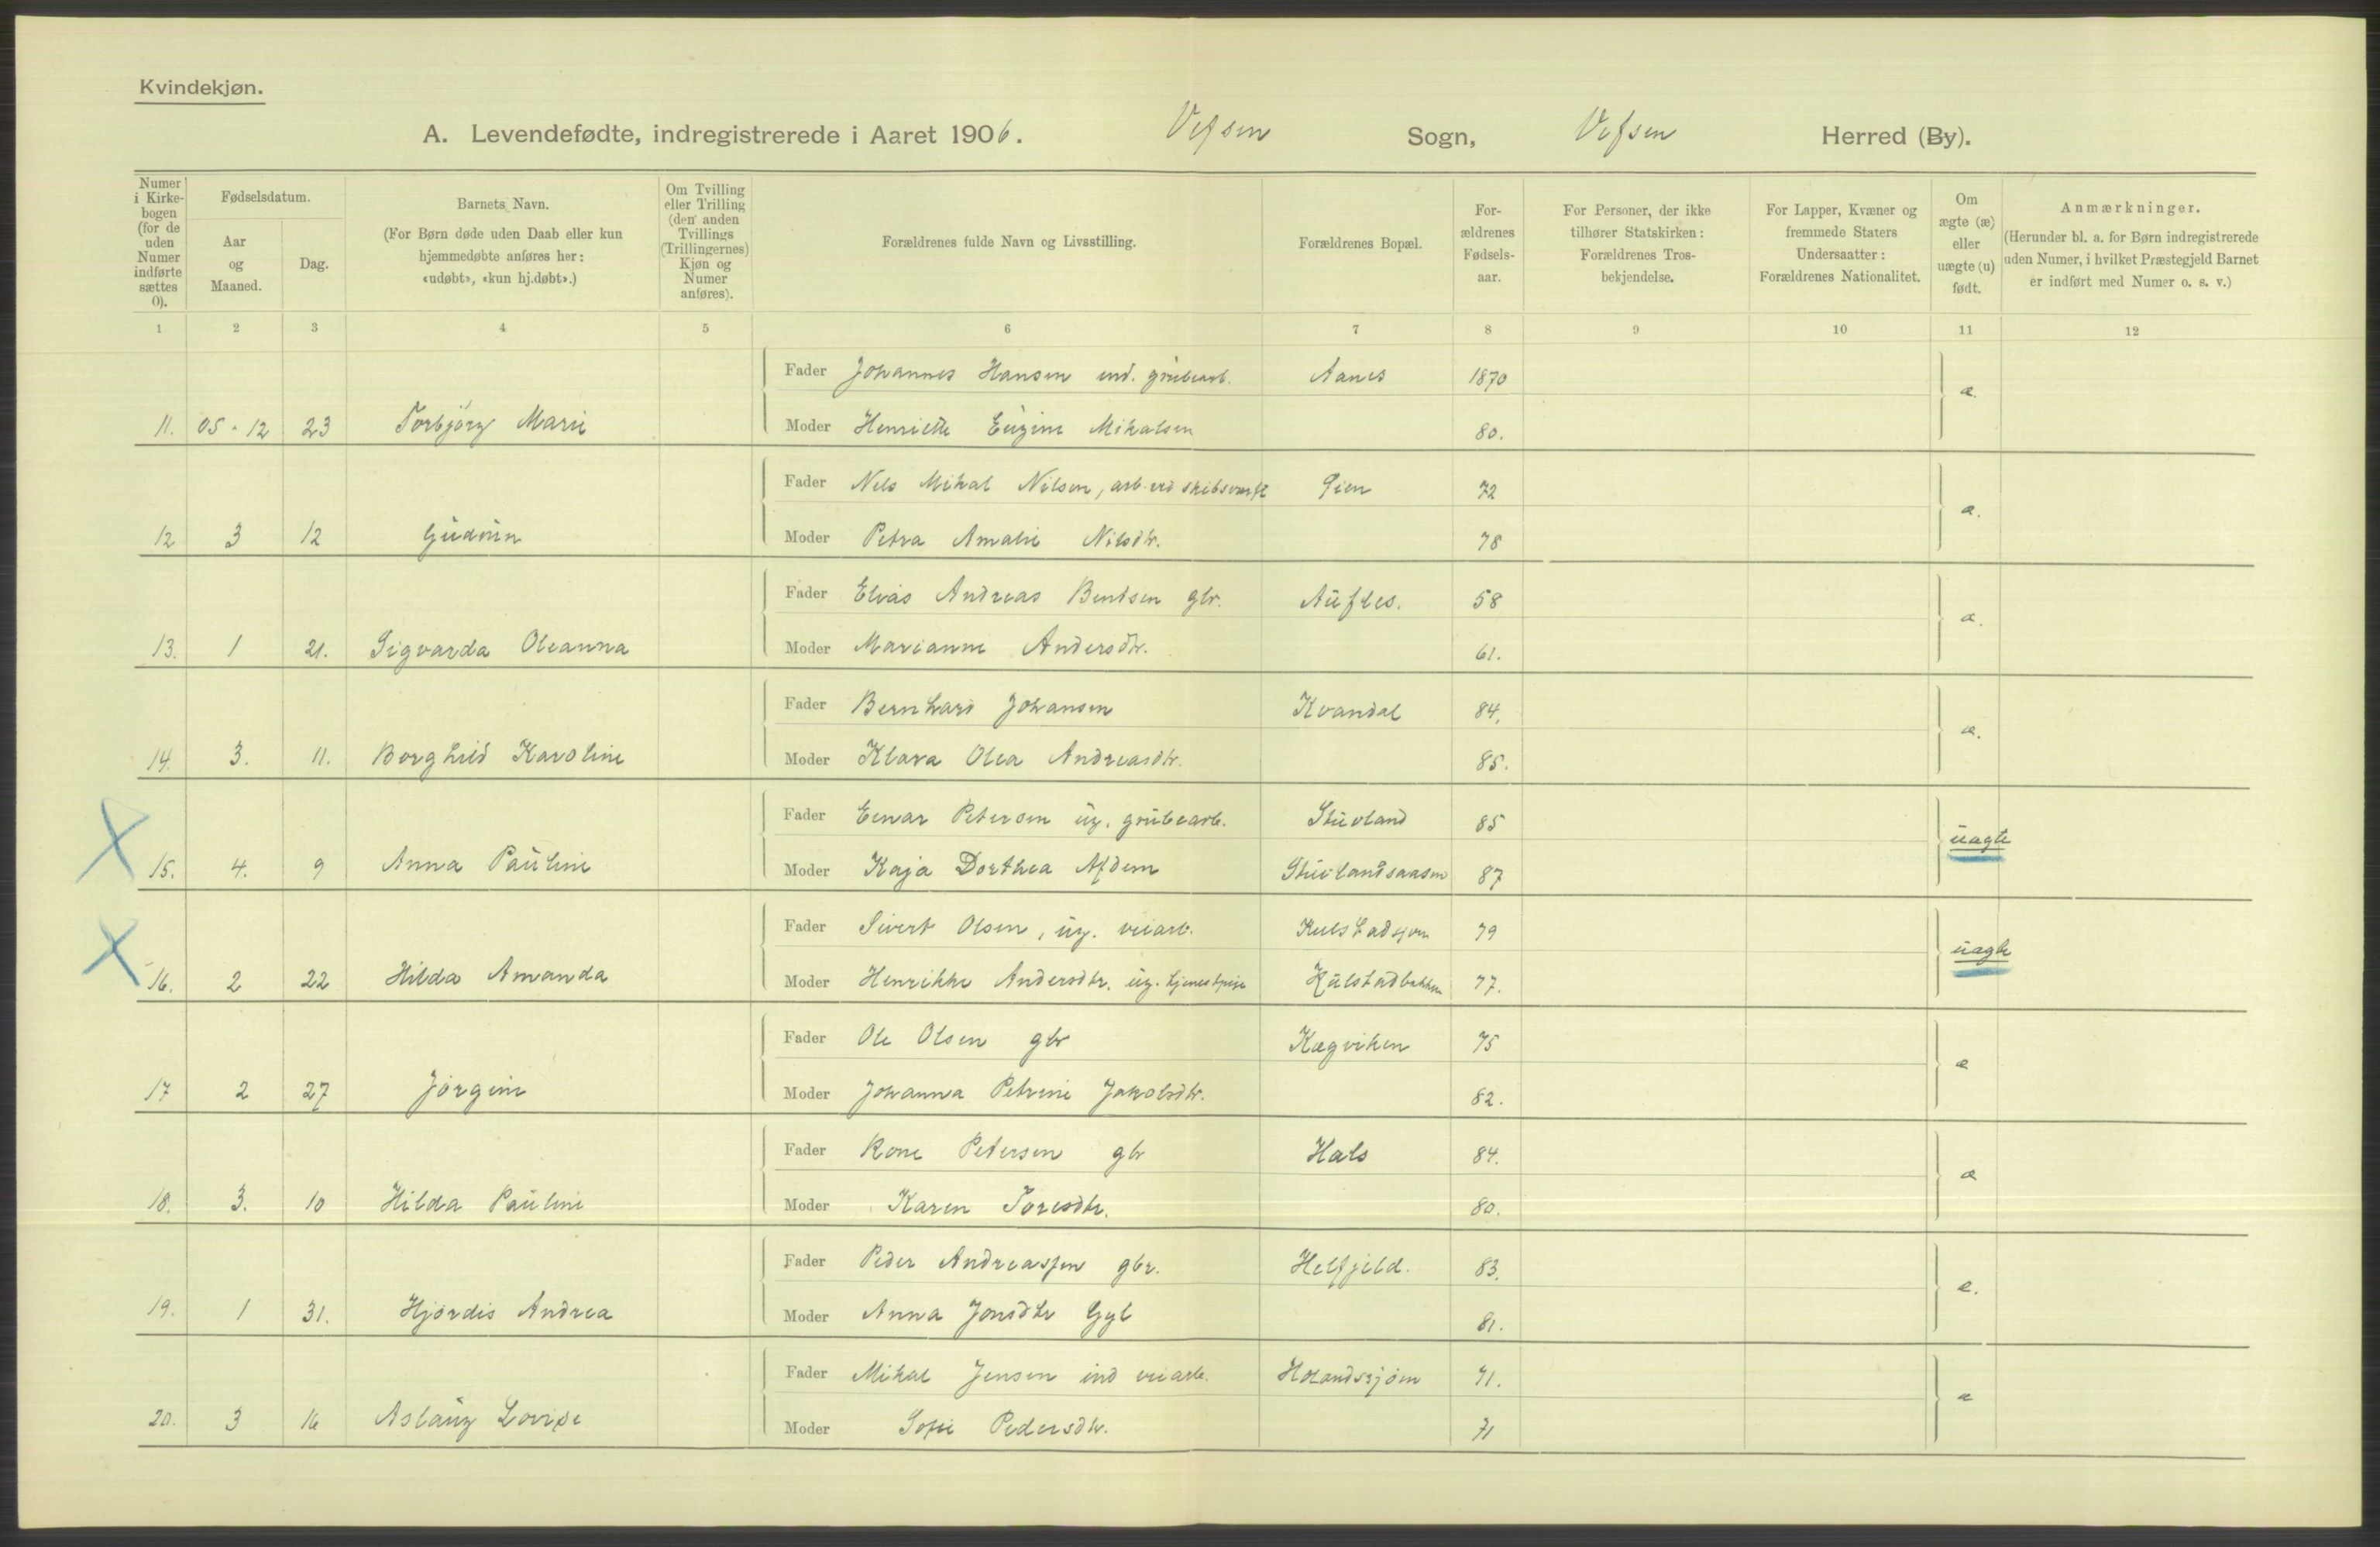 Kvindekjøn.
A. Levendefødte, indregistrerede i Aaret 1906. Vefsen Sogn, Vefsen Herred (By).
Numer i Kirkebogen (for de uden Numer indførte sættes 0).
Fødselsdatum.
Aar og Maaned.
Dag.
Barnets Navn.
(For Børn døde uden Daab eller kun hjemmedøbte anføres her: «udøbt», «kun hj.døbt».)
Om Tvilling eller Trilling (den anden Tvillings (Trillingernes) Kjøn og Numer anføres).
Forældrenes fulde Navn og Livsstilling.
Forældrenes Bopæl.
Forældrenes Fødselsaar.
For Personer, der ikke tilhører Statskirken: Forældrenes Trosbekjendelse.
For Lapper, Kvæner og fremmede Staters Undersaatter: Forældrenes Nationalitet.
Om ægte (æ) eller uægte (u) født.
Anmærkninger.
(Herunder bl. a. for Børn indregistrerede uden Numer, i hvilket Præstegjeld Barnet er indført med Numer o. s. v.)
1 2 3 4 5 6 7 8 9 10 11 12
Fader Johannes Hansen ind. grubearb. Aanes 1870 æ.
11. 05-12 23 Torbjørg Marie Moder Henriette Eugine Mikalsen 80.
Fader Nels Mikal Nilsen, arb. ved skibsverft Øien 72 æ.
12 3 12 Gudrun Moder Petra Amalie Nilsdtr. 78
Fader Elias Andreas Bentsen gbr. Aufles. 58 æ.
13. 1 21. Sigvarda Oleanna Moder Marianne Andersdtr. 61.
Fader Bernhard Johansen Kvandal 84. æ.
14. 3. 11. Borghild Karoline Moder Klara Olea Andreasdtr. 85.
Fader Einar Petersen ug. grubearb. Stuvland 85 uægte
15. 4. 9 Anna Pauline Moder Kaja Dorthea Afdem Stuvlandsaasen 87
Fader Sivert Olsen, ug. veiarb. Kulstadsjøen 79 uægte
16. 2 22 Hilda Amanda Moder Henrikke Andersdtr. ug. tjenestpige Kulstadbakken 77.
Fader Ole Olsen gbr Kægviken 75 æ
17 2 27 Jørgine Moder Johanna Petrine Jakobsdtr. 82.
Fader Kone Petersen gbr Hals 84. æ
18. 3. 10 Hilda Pauline Moder Karen Toresdtr. 80.
Fader Peder Andreassen gbr. Helfjeld. 83. æ.
19. 1 31. Hjørdis Andrea Moder Anna Jonsdtr Gyl 81.
Fader Mikal Jensen ind veiarb. Holandsjøen 71. æ
20. 3 16 Aslaug Lovise Moder Sofie Pedersdtr. 71